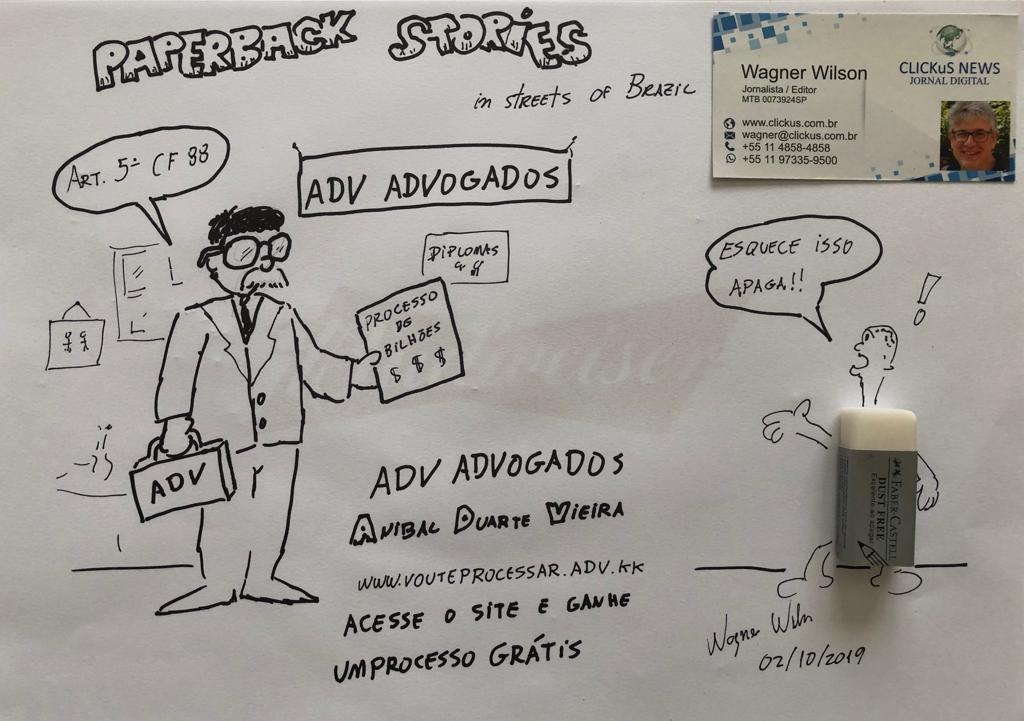 PAPERBACK STORIES
in STREETS OF BRAZIL
Wagner Wilson
Jornalista / Editor
MTB 0073924SP
www.clickus.com.br
wagner@clickus.com.br
+55 11 4858-4858
+55 11 97335-9500
CLICKuS NEWS
JORNAL DIGITAL
ART. 5º CF 88
ADV ADVOGADOS
DIPLOMAS
PROCESSO
DE
BILHÕES
$ $ $
ESQUECE ISSO
APAGA!!
!
ADV
ADV ADVOGADOS
ANIBAL DUARTE VIEIRA
WWW.VOUTEPROCESSAR.ADV.KK
ACESSE O SITE E GANHE
UM PROCESSO GRÁTIS
FABER-CASTELL
DUST FREE
Excelente ao apagar
Wagner Wilson
02/10/2019